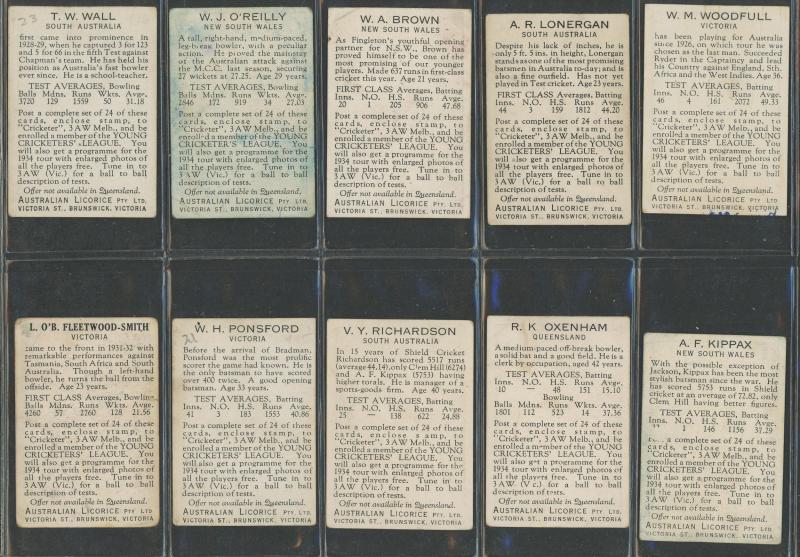 23
T. W. WALL
SOUTH AUSTRALIA
first came into prominence in
1928-29, when he captured 3 for 123
and 5 for 66 in the fifth Test against
Chapman's team. He has held his
position as Australia's fast bowler
ever since. He is a school-teacher.
TEST AVERAGES, Bowling
Balls Mdns. Runs Wkts. Avge.
3720 129 1559 50 31.18
Post a complete set of 24 of these
cards, enclose stamp, to
"Cricketer", 3 AW Melb., and be
enrolled a member of the YOUNG
CRICKETERS' LEAGUE. You
will also get a programme for the
1934 tour with enlarged photos of
all the players free. Tune in to
3 AW (Vic.) for a ball to ball
description of tests.
Offer not available in Queensland.
AUSTRALIAN LICORICE PTY LTD.
VICTORIA ST., BRUNSWICK, VICTORIA
W. J. O'REILLY
NEW SOUTH WALES
A tall, right-hand, medium-paced,
leg-break bowler, with a peculiar
action. He proved the mainstay
of the Australian attack against
the M.C.C. last season, securing
27 wickets at 27.25. Age 29 years.
TEST AVERAGES, Bowling
Balls Mdns. Runs Wkts. Avge.
2846 172 919 34 27.03
Post a complete set of 24 of these
cards, enclose stamp, to
"Cricketer", 3 AW Melb., and be
enrolled a member of the YOUNG
CRICKETERS' LEAGUE. You
will also get a programme for the
1934 tour with enlarged photos of
all the players free. Tune in to
3 AW (Vic.) for a ball to ball
description of tests.
Offer not available in Queensland.
AUSTRALIAN LICORICE PTY LTD.
VICTORIA ST., BRUNSWICK, VICTORIA
W. A. BROWN
NEW SOUTH WALES
As Fingleton's youthful opening
partner for N.S.W., Brown has
proved himself to be one of the
most promising of our younger
players. Made 637 runs in first-class
cricket this year. Age 21 years.
FIRST CLASS Averages, Batting
Inns. N.O. H.S. Runs Avge.
20 1 205 906 47.68
Post a complete set of 24 of these
cards, enclose stamp, to
"Cricketer", 3 AW Melb., and be
enrolled a member of the YOUNG
CRICKETERS' LEAGUE. You
will also get a programme for the
1934 tour with enlarged photos of
all the players free. Tune in to
3 AW (Vic.) for a ball to ball
description of tests.
Offer not available in Queensland.
AUSTRALIAN LICORICE PTY LTD.
VICTORIA ST., BRUNSWICK, VICTORIA
A. R. LONERGAN
SOUTH AUSTRALIA
Despite his lack of inches, he is
only 5 ft. 5 ins. in height, Lonergan
stands as one of the most promising
batsmen in Australia to-day; and is
also a fine outfield. Has not yet
played in Test cricket. Age 23 years.
FIRST CLASS AVERAGES, Batting
Inns. N.O. H.S. Runs Avge.
44 3 159 1812 44.20
Post a complete set of 24 of these
cards, enclose stamp, to
"Cricketer", 3 AW Melb., and be
enrolled a member of the YOUNG
CRICKETERS' LEAGUE. You
will also get a programme for the
1934 tour with enlarged photos of
all the players free. Tune in to
3 AW (Vic.) for a ball to ball
description of tests.
Offer not available in Queensland.
AUSTRALIAN LICORICE PTY LTD.
VICTORIA ST., BRUNSWICK, VICTORIA
W. M. WOODFULL
VICTORIA
has been playing for Australia
since 1926, on which tour he was
chosen as the last man. Succeeded
Ryder in the Captaincy and lead
his Country against England, Sth.
Africa and the West Indies. Age 36.
TEST AVERAGES, Batting
Inns. N.O. H.S. Runs Avge.
46 4 161 2072 49.33
Post a complete set of 24 of these
cards, enclose stamp, to
"Cricketer", 3 AW Melb., and be
enrolled a member of the YOUNG
CRICKETERS' LEAGUE. You
will also get a programme for the
1934 tour with enlarged photos of
all the players free. Tune in to
3 AW (Vic.) for a ball to ball
description of tests.
Offer not available in Queensland.
AUSTRALIAN LICORICE PTY LTD.
VICTORIA ST., BRUNSWICK, VICTORIA
L. O'B. FLEETWOOD-SMITH
VICTORIA
came to the front in 1931-32 with
remarkable performances against
Tasmania, South Africa and South
Australia. Though a left-hand
bowler, he turns the ball from the
offside. Age 23 years.
FIRST CLASS Averages, Bowling
Balls Mdns. Runs Wkts. Avge.
4260 57 2760 128 21.56
Post a complete set of 24 of these
cards, enclose stamp, to
"Cricketer", 3 AW Melb., and be
enrolled a member of the YOUNG
CRICKETERS' LEAGUE. You
will also get a programme for the
1934 tour with enlarged photos of
all the players free. Tune in to
3 AW (Vic.) for a ball to ball
description of tests.
Offer not available in Queensland.
AUSTRALIAN LICORICE PTY LTD.
VICTORIA ST., BRUNSWICK, VICTORIA
21
W. H. PONSFORD
VICTORIA
Before the arrival of Bradman,
Ponsford was the most prolific
scorer the game had known. He is
the only batsman to have scored
over 400 twice. A good opening
batsman. Age 33 years.
TEST AVERAGES, Batting
Inns. N.O. H.S. Runs Avge.
41 3 183 1553 40.86
Post a complete set of 24 of these
cards, enclose stamp, to
"Cricketer", 3 AW Melb., and be
enrolled a member of the YOUNG
CRICKETERS' LEAGUE. You
will also get a programme for the
1934 tour with enlarged photos of
all the players free. Tune in to
3 AW (Vic.) for a ball to ball
description of tests.
Offer not available in Queensland.
AUSTRALIAN LICORICE PTY LTD.
VICTORIA ST., BRUNSWICK, VICTORIA
V. Y. RICHARDSON
SOUTH AUSTRALIA
In 15 years of Shield Cricket
Richardson has scored 5517 runs
(average 44.14), only Clem Hill (6274)
and A. F. Kippax (5753) having
higher totals. He is manager of a
sports-goods firm. Age 40 years.
TEST AVERAGES, Batting
Inns. N.O. H.S. Runs Avge.
25 138 622 24.88
Post a complete set of 24 of these
cards, enclose stamp, to
"Cricketer", 3 AW Melb., and be
enrolled a member of the YOUNG
CRICKETERS' LEAGUE. You
will also get a programme for the
1934 tour with enlarged photos of
all the players free. Tune in to
3 AW (Vic.) for a ball to ball
description of tests.
Offer not available in Queensland.
AUSTRALIAN LICORICE PTY LTD.
VICTORIA ST., BRUNSWICK, VICTORIA
R. K OXENHAM
QUEENSLAND
A medium-paced off-break bowler,
a solid bat and a good field. He is a
clerk by occupation, aged 42 years.
TEST AVERAGES, Batting
Inns. N.O. H.S. Runs Avge.
10 — 48 151 15.10
Bowling
Balls Mdns. Runs Wkts. Avge.
1801 112 523 14 37.36
Post a complete set of 24 of these
cards, enclose stamp, to
"Cricketer", 3 AW Melb., and be
enrolled a member of the YOUNG
CRICKETERS' LEAGUE. You
will also get a programme for the
1934 tour with enlarged photos of
all the players free. Tune in to
3 AW (Vic.) for a ball to ball
description of tests.
Offer not available in Queensland.
AUSTRALIAN LICORICE PTY LTD.
VICTORIA ST., BRUNSWICK, VICTORIA
A. F. KIPPAX
NEW SOUTH WALES
With the possible exception of
Jackson, Kippax has been the most
stylish batsman since the war. He
has scored 5753 runs in Shield
cricket at an average of 72.82, only
Clem Hill having better figures.
TEST AVERAGES, Batting
Inns. N.O. H.S. Runs Avge.
1 146 1156 37.29
a complete set of 24 of these
cards, enclose stamp, to
"Cricketer", 3 AW Melb., and be
enrolled a member of the YOUNG
CRICKETERS' LEAGUE. You
will also get a programme for the
1934 tour with enlarged photos of
all the players free. Tune in to
3 AW (Vic.) for a ball to ball
description of tests.
Offer not available in Queensland.
AUSTRALIAN LICORICE PTY LTD.
VICTORIA ST., BRUNSWICK, VICTORIA